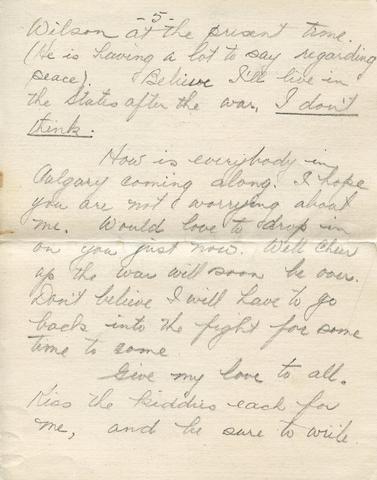 -5-
Wilson at the present time.
(He is having a lot to say regarding
peace). Believe I'll live in
the States after the war, I don't
think.
How is everybody in
Calgary coming along. I hope
you are not worrying about
me. Would love to drop in
on you just now. Well cheer
up the war will soon be over.
Don't believe I will have to go
back into the fight for some
time to come
Give my love to all.
Kiss the kiddies each for
me, and be sure to write